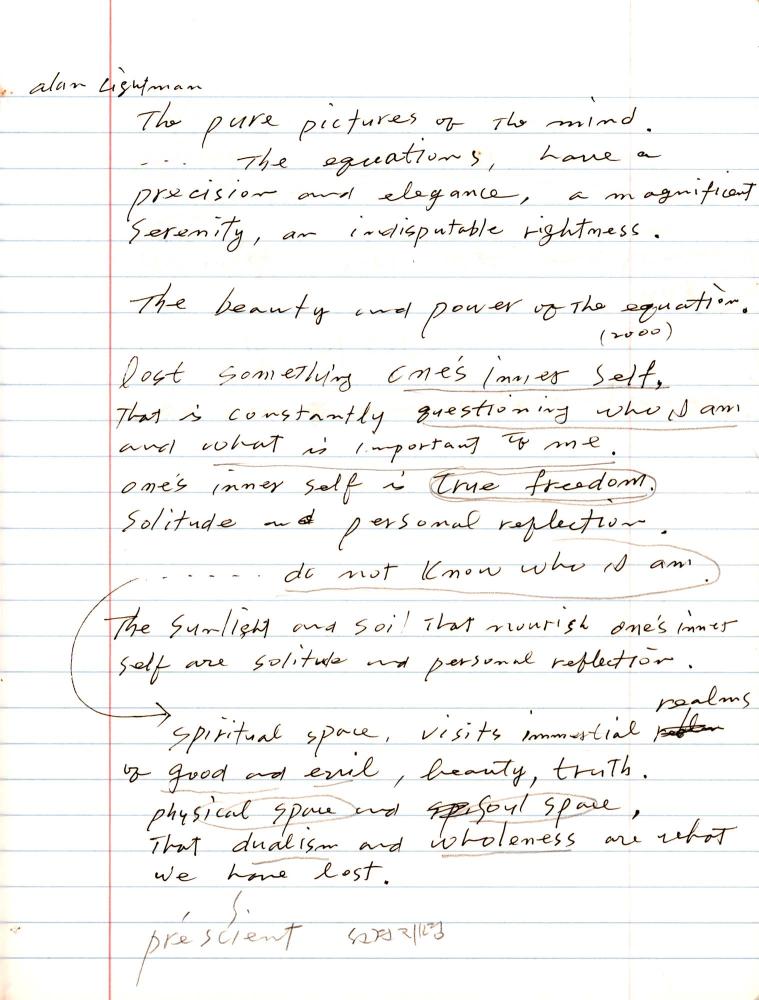 alan Lightman
The pure pictures of the mind.
... The equations, have a
precision and elegance, a magnificent
Serenity, an indisputable rightness.
The beauty and power of the equation.
(2000)
lost something one's inner self,
That is constantly questioning who I am
and what is important to me.
one's inner self is true freedom.
Solitude and personal reflection.
...... do not know who I am.
The sunlight and soil that nourish one's inner
self are solitude and personal reflection.
realms
spiritual space, visits immortial
of good and evil, beauty, truth.
physical space and soul space,
That dualism and wholeness are what
we have lost.
S.
prescient 선견지명